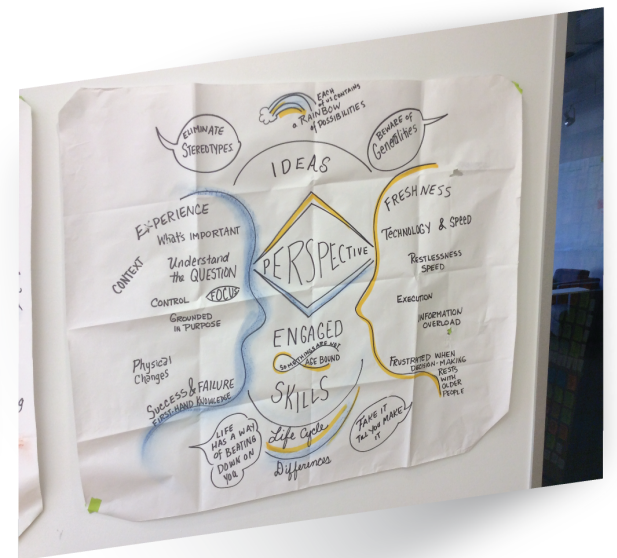 EACH
of US CONTAINS
a RAINBOW
of POSSIBILITIES
ELIMINATE
STEREOTYPES
BEWARE OF
Generalities
IDEAS
EXPERIENCE
What's IMPORTANT
CONTEXT
Understand
the QUESTION
CONTROL FOCUS
GROUNDED
IN PURPOSE
Physical
Changes
SUCCESS & FAILURE
FIRST-HAND KNOWLEDGE
PERSPECTIVE
ENGAGED
SOME THINGS ARE NOT
AGE BOUND
SKILLS
FRESHNESS
TECHNOLOGY & SPEED
RESTLESSNESS
SPEED
EXECUTION
INFORMATION
OVERLOAD
FRUSTRATED WHEN
DECISION-MAKING
RESTS
WITH
OLDER
PEOPLE
LIFE
HAS A WAY
OF BEATING
DOWN ON
YOU
Life Cycle
Differences
FAKE IT
TILL YOU MAKE
IT